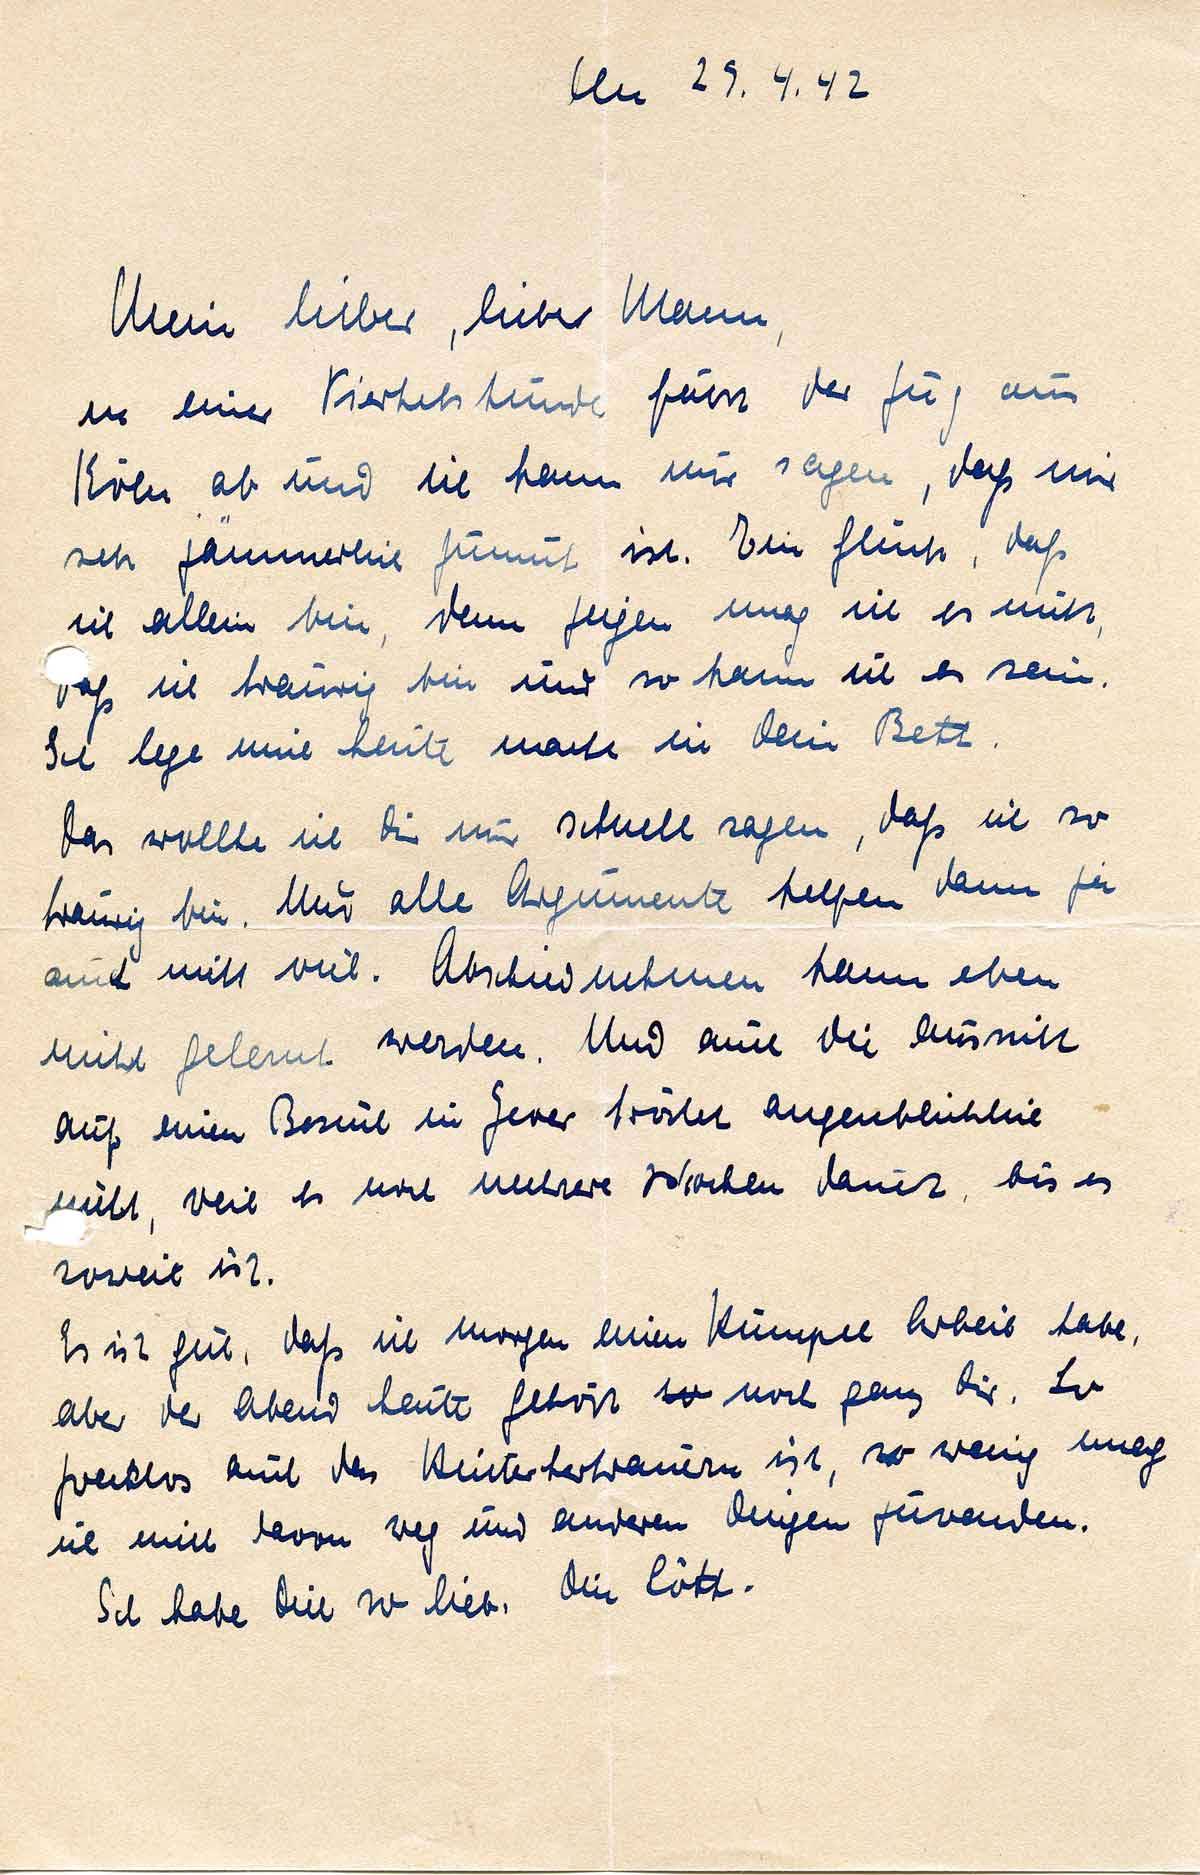 Den 29.4.42
Mein lieber, lieber Mann,
in einer Viertelstunde fährt der Zug aus
Köln ab und ich kann nur sagen, daß mir
sehr jämmerlich zumut ist. Ein Glück, daß
ich allein bin, denn zeigen mag ich es nicht,
daß ich traurig bin und so kann ich es sein.
Ich lege mich heute nacht in Dein Bett.
Das wollte ich Dir nur schnell sagen, daß ich so
traurig bin. Und alle Argumente helfen dann ja
auch nicht viel. Abschiednehmen kann eben
nicht gelernt werden. Und auch die Aussicht
auf einen Besuch in Jever tröstet augenblicklich
nicht, weil es noch mehrere Wochen dauert, bis es
soweit ist.
Es ist gut, daß ich morgen einen Rümpel Arbeit habe,
aber der Abend heute gehört noch ganz Dir. So
zwecklos auch das Hinterhertrauern ist, so wenig mag
ich mich davon weg und anderen Dingen zuwenden.
Ich habe Dich so lieb. Dein Lött.